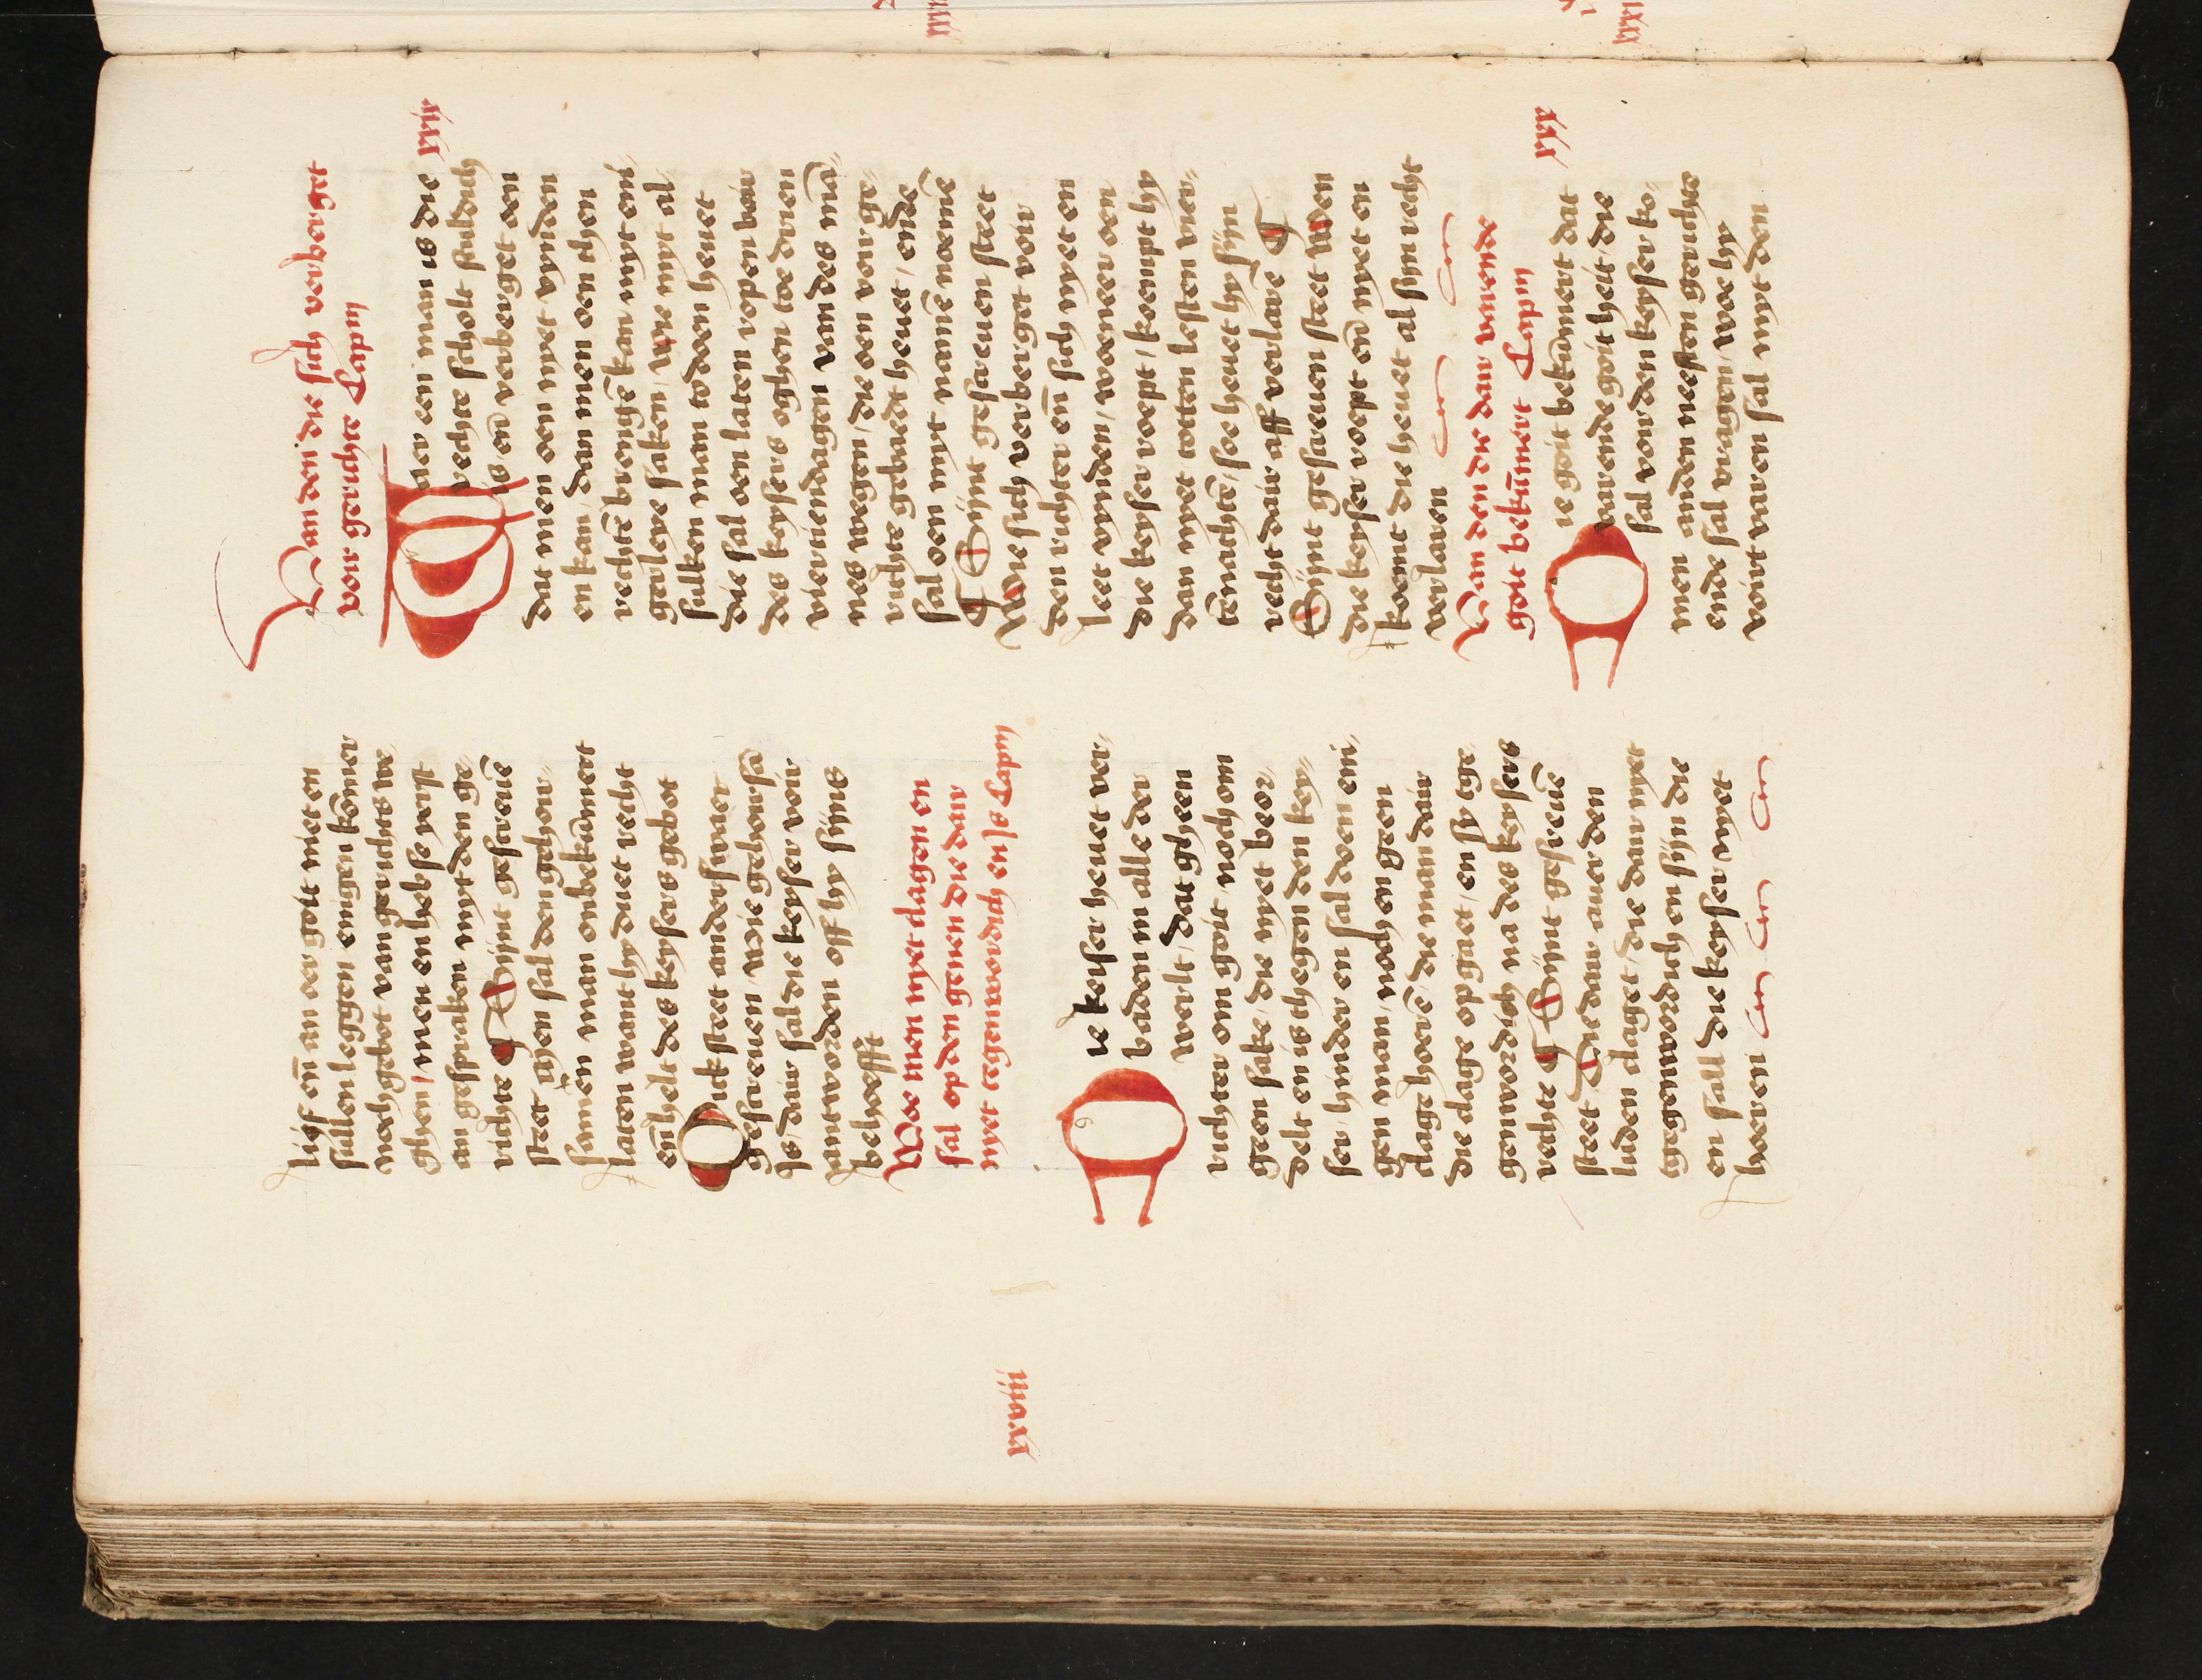 liif en̄ an oer goit niet en
sullen leggen enigen kōmer
noch gebot van gerichtes we„
ghen / men en heb se yerst
an gespraken myt den ge„
richte ¶ Sijnt gescreuē
steet Ghen sal den gehor„
samen man onbekūmert
laten want hy duet recht
en̄ helt des keysers gebot
Oick steet anderswaer
gescreuen / wie gehorsā
Is / dair sal die keyser voir
antworden off hy sijns
behoefft
Woe men nyet clagen en
sal op den genen die dair
nyet tegenwordich en is Capm
xxviii
Die keyser heuet ver„
baden in alle der
werlt / dat gheen
richter om goit / noch om
geen sake / die nyet beor„
delt en is thegen den key„
ser / hinder en sal doen eni„
gen man / noch en geen
clage hoerē / die man dair
die clage op gaet / en sy tge„
genwordich na des keysers
rechte ¶ Sijnt gescreuē
steet Die dair auer den
luden claget / die dair nyet
tgegenwordich en sijn die
en sall die keyser nyet
hoeren
Van den die sich verberget
voir gerichte Capm
xxix
Waer een man is die
rechte scholt sculdich
is en̄ verberget oen
dat men oen nyet vynden
en kan / dan men oen then
rechtē brengē kan myt eni„
gerleye saken / Wie myt al„
sulken man to doen heuet
die sal oen laten ropen bair
des keysers oghen toe drien
viertiendagen van des mā„
nes wegen / die oen vor ge„
richte gelaedt heuet / ende
sal oen myt namē noemē
¶ Sijnt gescreuen steet
Wie sich verberget voir
den richter en̄ sich nyet en
leet vynden / woeneer oen
die keyser roept / koempt hy
dan nyet totten lesten vier„
tēnachtē / soe heuet hy sijn
recht dair aff verlarē ¶
Sijnt gescreuen steet Wen
die keyser roept en̄ nyet en
koemt die heuet al sijn recht
verlaren
Van den die dair varende
goit bekūmert Capm
xxx
Die goit bekūmert dat
varende goit heit / die
sal vor den keyser ko„
men an den neesten gerichte
ende sal vragen / woe hy
voirt varen sal myt den